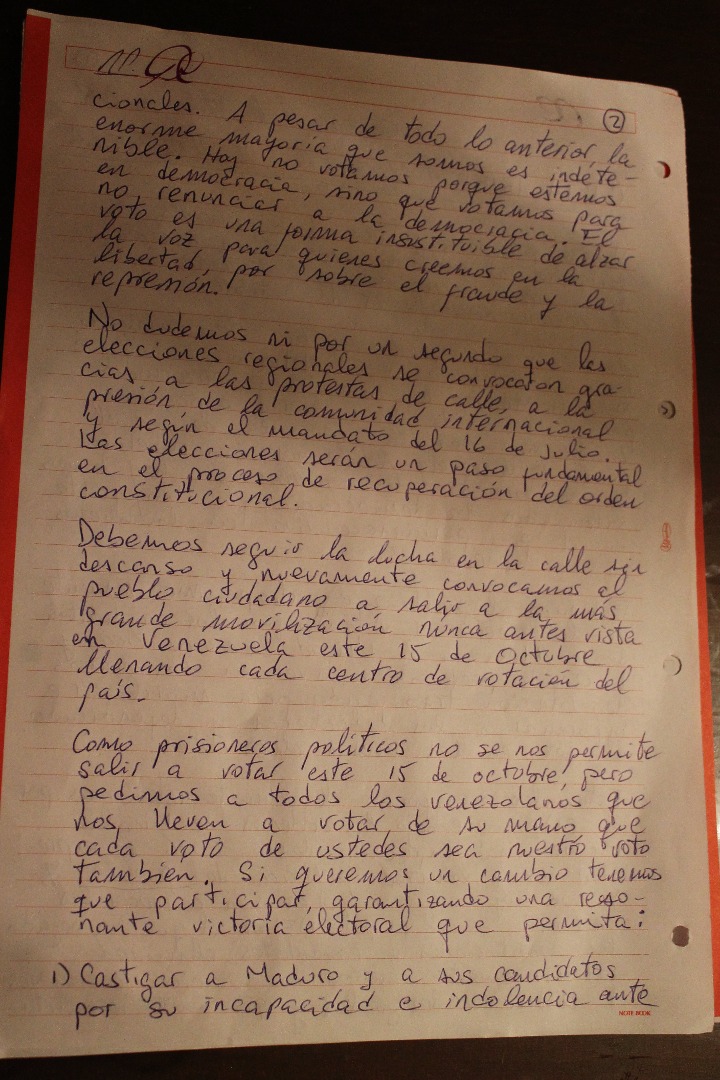 2
cionales. A pesar de todo lo anterior, la
enorme mayoría que somos es indete-
nible. Hoy no votamos porque estemos
en democracia, sino que votamos para
no renunciar a la democracia. El
voto es una forma insustituible de alzar
la voz para quienes creemos en la
libertad, por sobre el fraude y la
represión.
No dudemos ni por un segundo que las
elecciones regionales se convocaron gra-
cias a las protestas de calle, a la
presión de la comunidad internacional
y según el mandato del 16 de Julio.
Las elecciones serán un paso fundamental
en el proceso de recuperación del orden
constitucional.
Debemos seguir la lucha en la calle sin
descanso y nuevamente convocamos al
pueblo ciudadano a salir a la más
grande movilización nunca antes vista
en Venezuela este 15 de Octubre
llenando cada centro de votación del
país.
Como prisioneros políticos no se nos permite
salir a votar este 15 de octubre, pero
pedimos a todos los venezolanos que
nos lleven a votar de su mano que
cada voto de ustedes sea nuestro voto
también. Si queremos un cambio tenemos
que participar, garantizando una reso-
nante victoria electoral que permita:
1) Castigar a Maduro y a sus candidatos
por su incapacidad e indolencia ante
NOTE BOOK